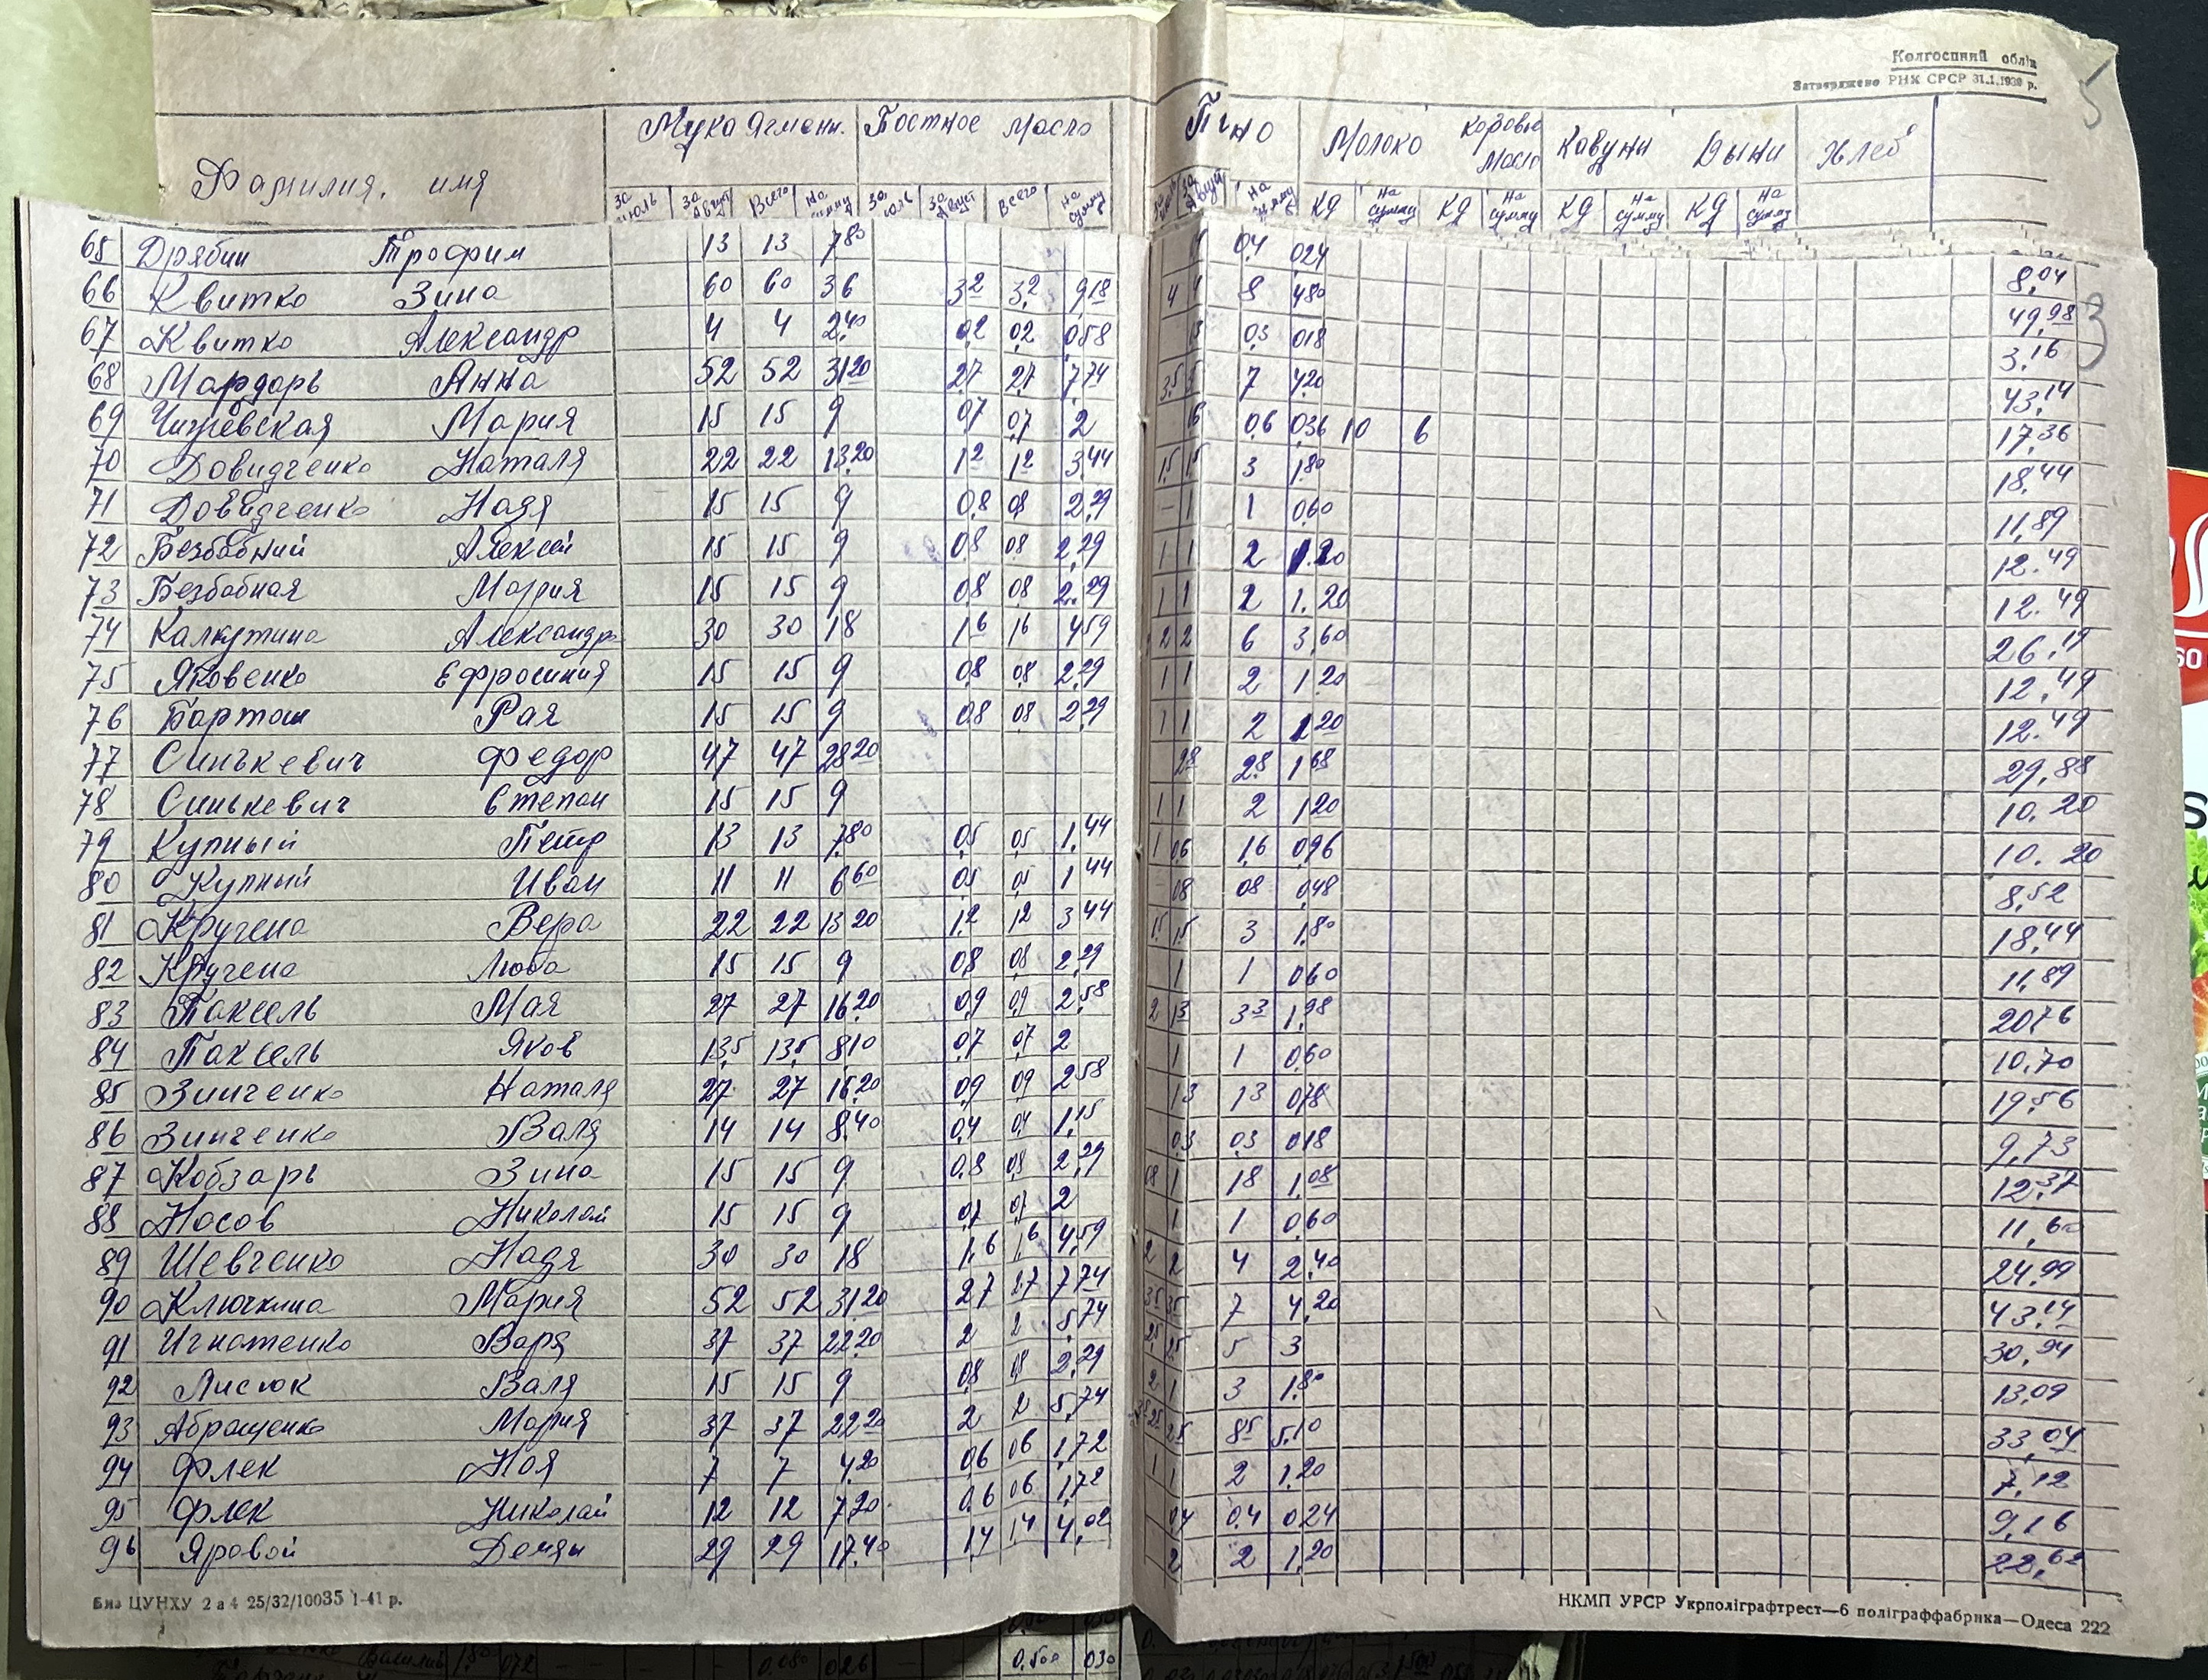 Колгоспний облік
Затверджено РНК СРСР 31.1.1939 р.
5
Фамилия, имя Мука Ячмени. Постное масло Пшно Молоко Коровье Масло Кавуни Дыни Хлеб
за июль за Август Всего На сумму за июль за Август Всего на сумму за Август На сумму КД На сумму КД На сумму КД На сумму КД На сумму
65 Дрябин Трофим 13 13 7,80 0,4 0,24 8,04
66 Квитко Зина 60 60 36 3,2 3,2 9,18 4 4 8 4,80 49,98
67 Квитко Александр 4 4 2,40 0,2 0,2 0,58 0,3 0,18 3,16
68 Мардарь Анна 52 52 31,20 2,7 2,7 7,74 3,5 3,5 7 4,20 43,14
69 Чижевская Мария 15 15 9 0,7 0,7 2 0,6 0,36 10 6 17,36
70 Довидченко Наталя 22 22 13,20 1,2 1,2 3,44 1,5 1,5 3 1,80 18,44
71 Довидченко Надя 15 15 9 0,8 0,8 2,29 – 1 1 0,60 11,89
72 Безбабний Алексей 15 15 9 0,8 0,8 2,29 1 1 2 1,20 12.49
73 Безбабная Мария 15 15 9 0,8 0,8 2,29 1 1 2 1,20 12.49
74 Калкутина Александр 30 30 18 1,6 1,6 4,59 2 2 6 3,60 26,19
75 Яковенко Ефросиния 15 15 9 0,8 0,8 2,29 1 1 2 1,20 12,49
76 Барташ Рая 15 15 9 0,8 0,8 2,29 1 1 2 1,20 12.49
77 Синькевич Федор 47 47 28,20 2,8 2,8 1,68 29,88
78 Синькевич Степан 15 15 9 1 1 2 1,20 10,20
79 Купный Петр 13 13 7,80 0,5 0,5 1,44 1 0,6 1,6 0,96 10.20
80 Купный Иван 11 11 6,60 0,5 0,5 1,44 – 0,8 0,8 0,48 8,52
81 Кручена Вера 22 22 13,20 1,2 1,2 3,44 1,5 1,5 3 1,80 18,44
82 Кручена Люба 15 15 9 0,8 0,8 2,29 1 1 0,60 11,89
83 Паксель Мая 27 27 16,20 0,9 0,9 2,58 2 1,3 3,3 1,98 20,76
84 Паксель Яков 13,5 13,5 8,10 0,7 0,7 2 1 1 0,60 10,70
85 Зинченко Наталя 27 27 16,20 0,9 0,9 2,58 1,3 1,3 0,78 19,56
86 Зинченко Валя 14 14 8,40 0,4 0,4 1,15 0,3 0,3 0,18 9,73
87 Кобзарь Зина 15 15 9 0,8 0,8 2,29 0,8 1 1,8 1,08 12,37
88 Носов Николай 15 15 9 0,7 0,7 2 1 1 0,60 11,60
89 Шевченко Надя 30 30 18 1,6 1,6 4,59 2 2 4 2,40 24,99
90 Ключкина Мария 52 52 31,20 2,7 2,7 7,74 3,5 3,5 7 4,20 43,14
91 Игнатенко Варя 37 37 22,20 2 2 5,74 2,5 2,5 5 3 30,94
92 Лисюк Валя 15 15 9 0,8 0,8 2,29 2 1 3 1,80 13,09
93 Абращенко Мария 37 37 22,20 2 2 5,74 2,5 8,5 5,10 33,04
94 Флек Ноя 7 7 4,20 0,6 0,6 1,72 1 1 2 1,20 7,12
95 Флек Николай 12 12 7,20 0,6 0,6 1,72 0,4 0,4 0,24 9,16
96 Яровой Демян 29 29 17,40 1,4 1,4 4,02 2 2 1,20 22,62
3
Бна ЦУНХУ 2 а 4 25/32/10035 1-41 р.
НКМП УРСР Укрполіграфтрест—6 поліграффабрика—Одеса 222